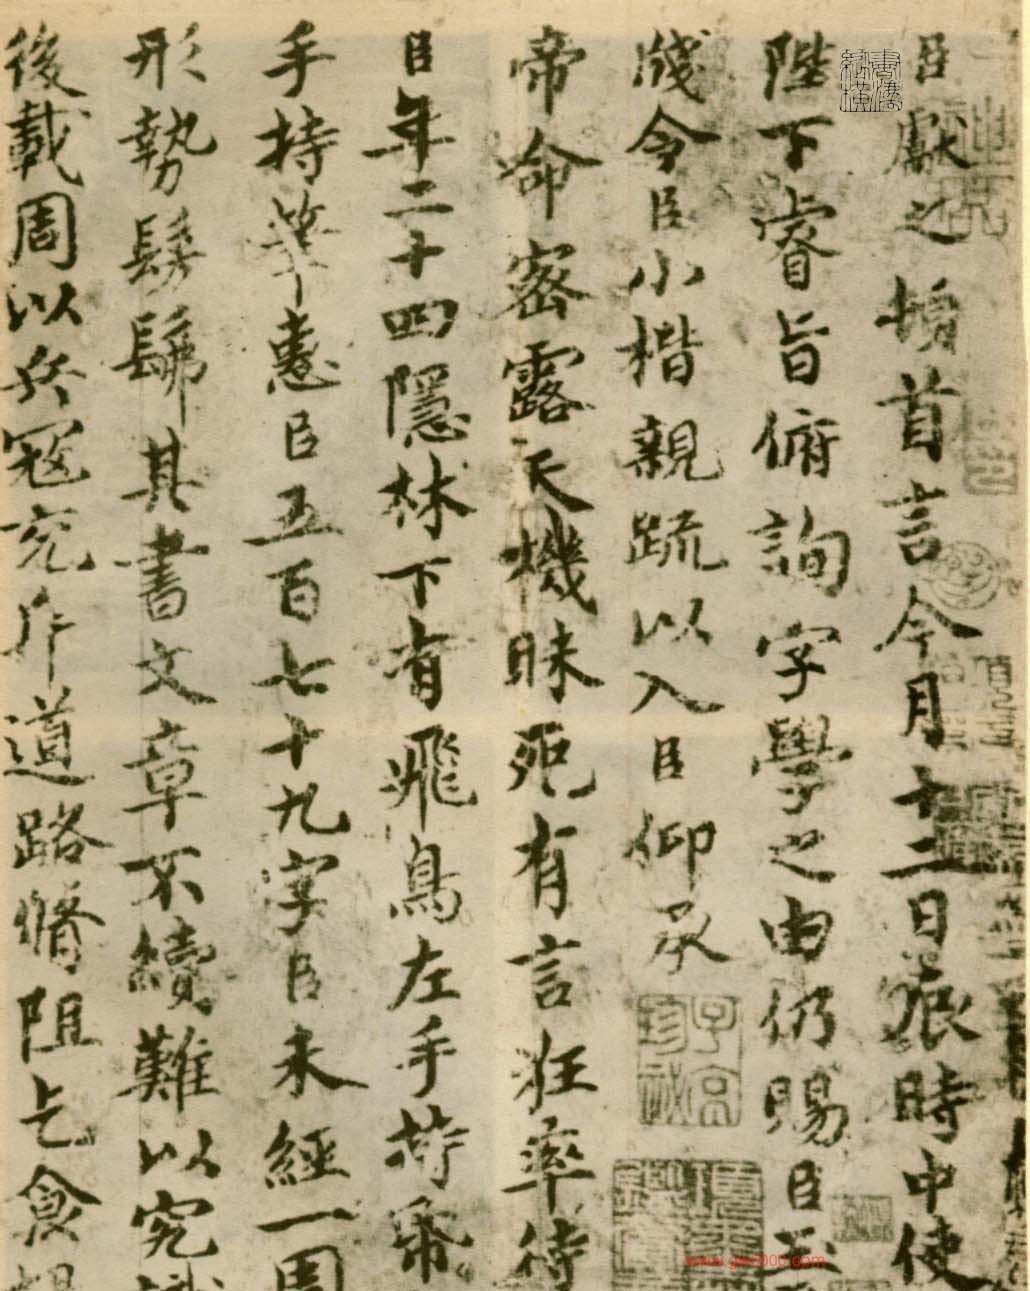 臣獻之頓首言今月十二日辰時中使
陛下睿旨俯詢字學之由仍賜臣玉
牋令臣小楷親疏以入臣仰承
帝命密露天機昧死有言狂率待
臣年二十四隱林下有飛鳥左手持帋
手持筆惠臣五百七十九字臣未經一周
形勢髣髴其書文章不續難以究
後載周以兵寇充斥道路脩阻乞食
子京珍秘